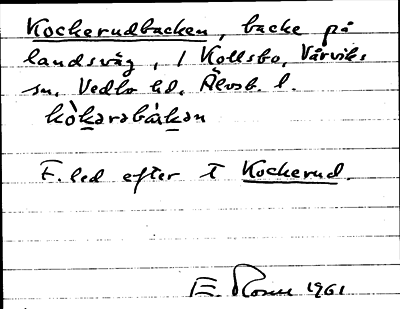 Kockerudbacken, backe på
landsväg, i Kollsbo, Vårviks
sn, Vedbo hd, Älvsb. l.
kòkərəbàkən
F. led efter T Kockerud.
E. 1961